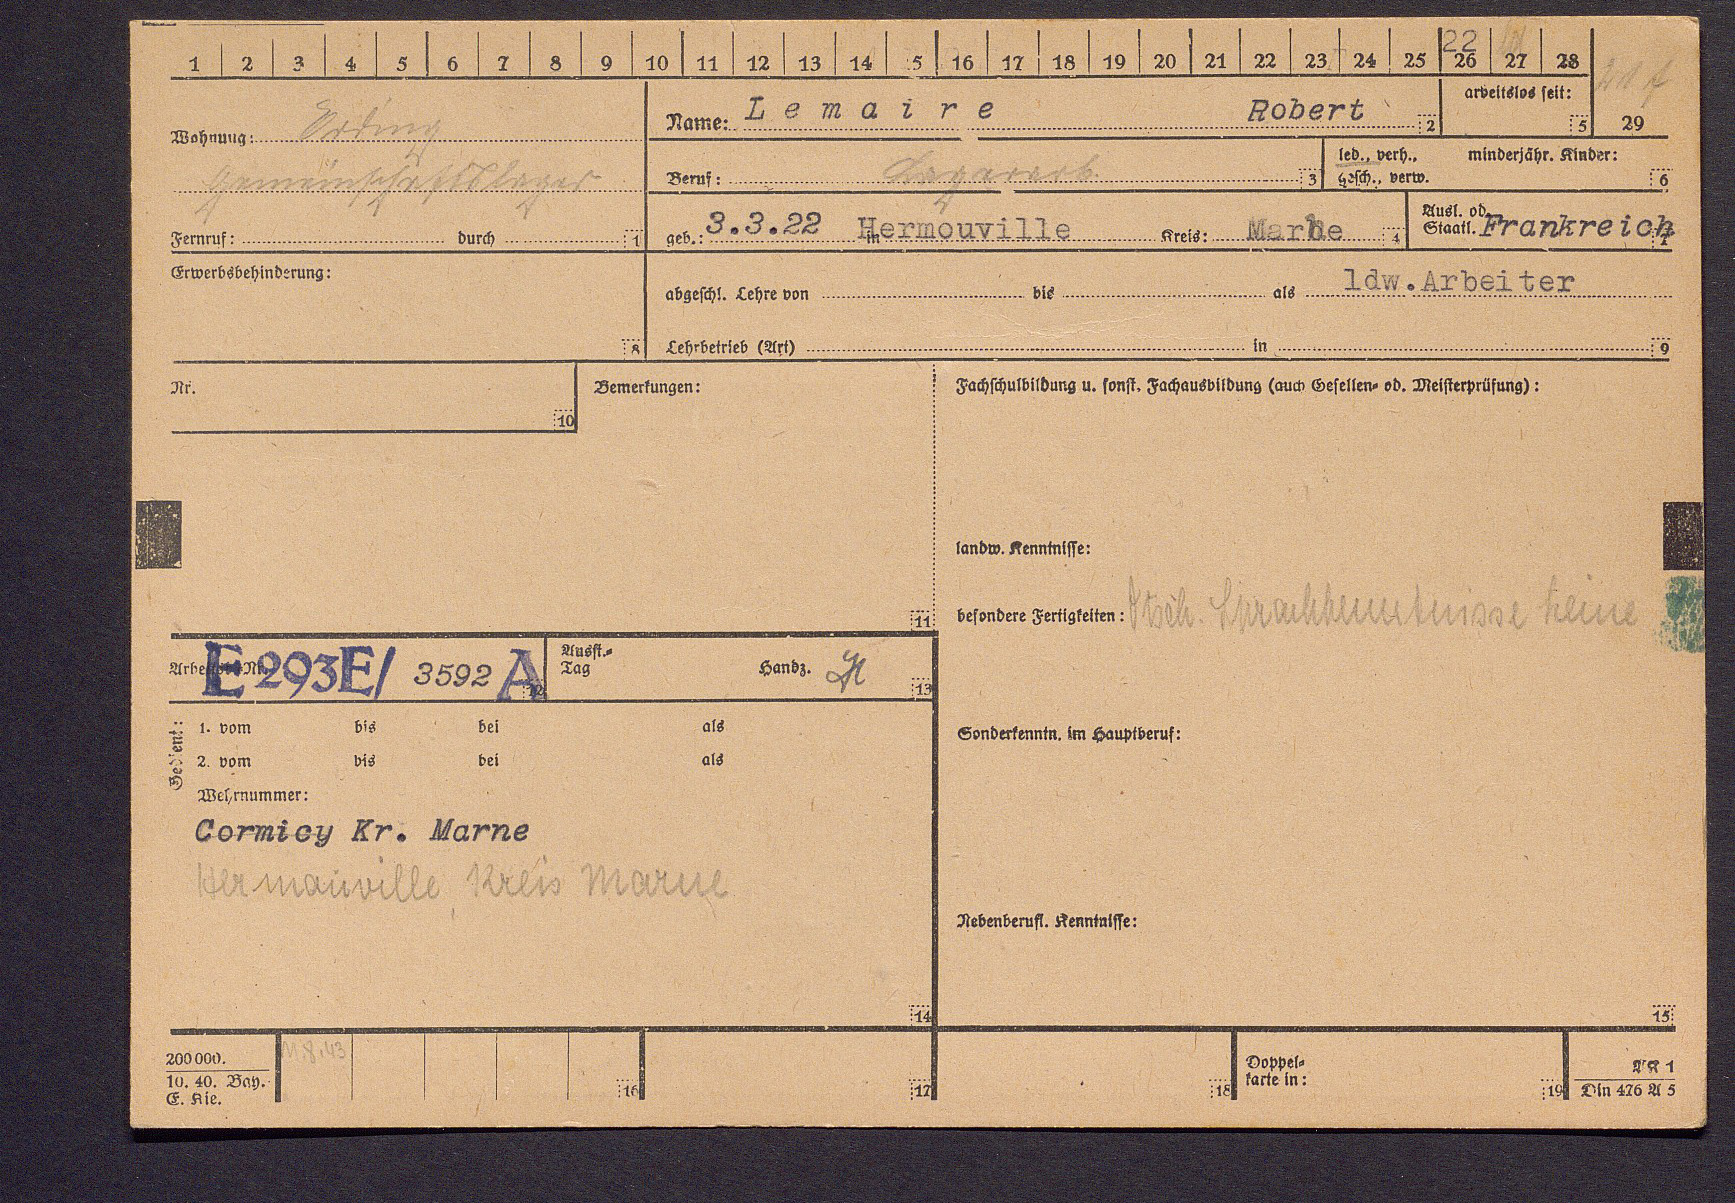 1 2 3 4 5 6 7 8 9 10 11 12 13 14 15 16 17 18 19 20 21 22 23 24 25 26 27 28
22
Wohnung: Erding
Gemeinschaftslager
Fernruf: durch 1
Name: Lemaire Robert 2
arbeitslos seit: 5
29
Beruf: Lagerarb. 3
led., verh., minderjähr. Kinder:
gesch., verw. 6
geb.: 3.3.22 in Hermouville Kreis: Marne 4
Ausl. od.
Staatl. Frankreich 7
Erwerbsbehinderung:
8
abgeschl. Lehre von bis als ldw.Arbeiter
Lehrbetrieb (Art) in 9
Nr.
10
Bemerkungen:
11
Fachschulbildung u. sonst. Fachausbildung (auch Gesellen- od. Meisterprüfung):
landw. Kenntnisse:
besondere Fertigkeiten: Dtsch. Sprachkenntnisse keine
Sonderkenntn. im Hauptberuf:
Nebenberufl. Kenntnisse:
15
E 293E/ 3592 A 12
Ausst.-
Tag Handz. 13
Gedient:
1. vom bis bei als
2. vom bis bei als
Wehrnummer:
Cormicy Kr. Marne
Hermauville, Kreis Marne
14
200 000.
10. 40. Bay.
E. Kie.
16 17 18
Doppel-
karte in: 19
AK 1
Din 476 A 5